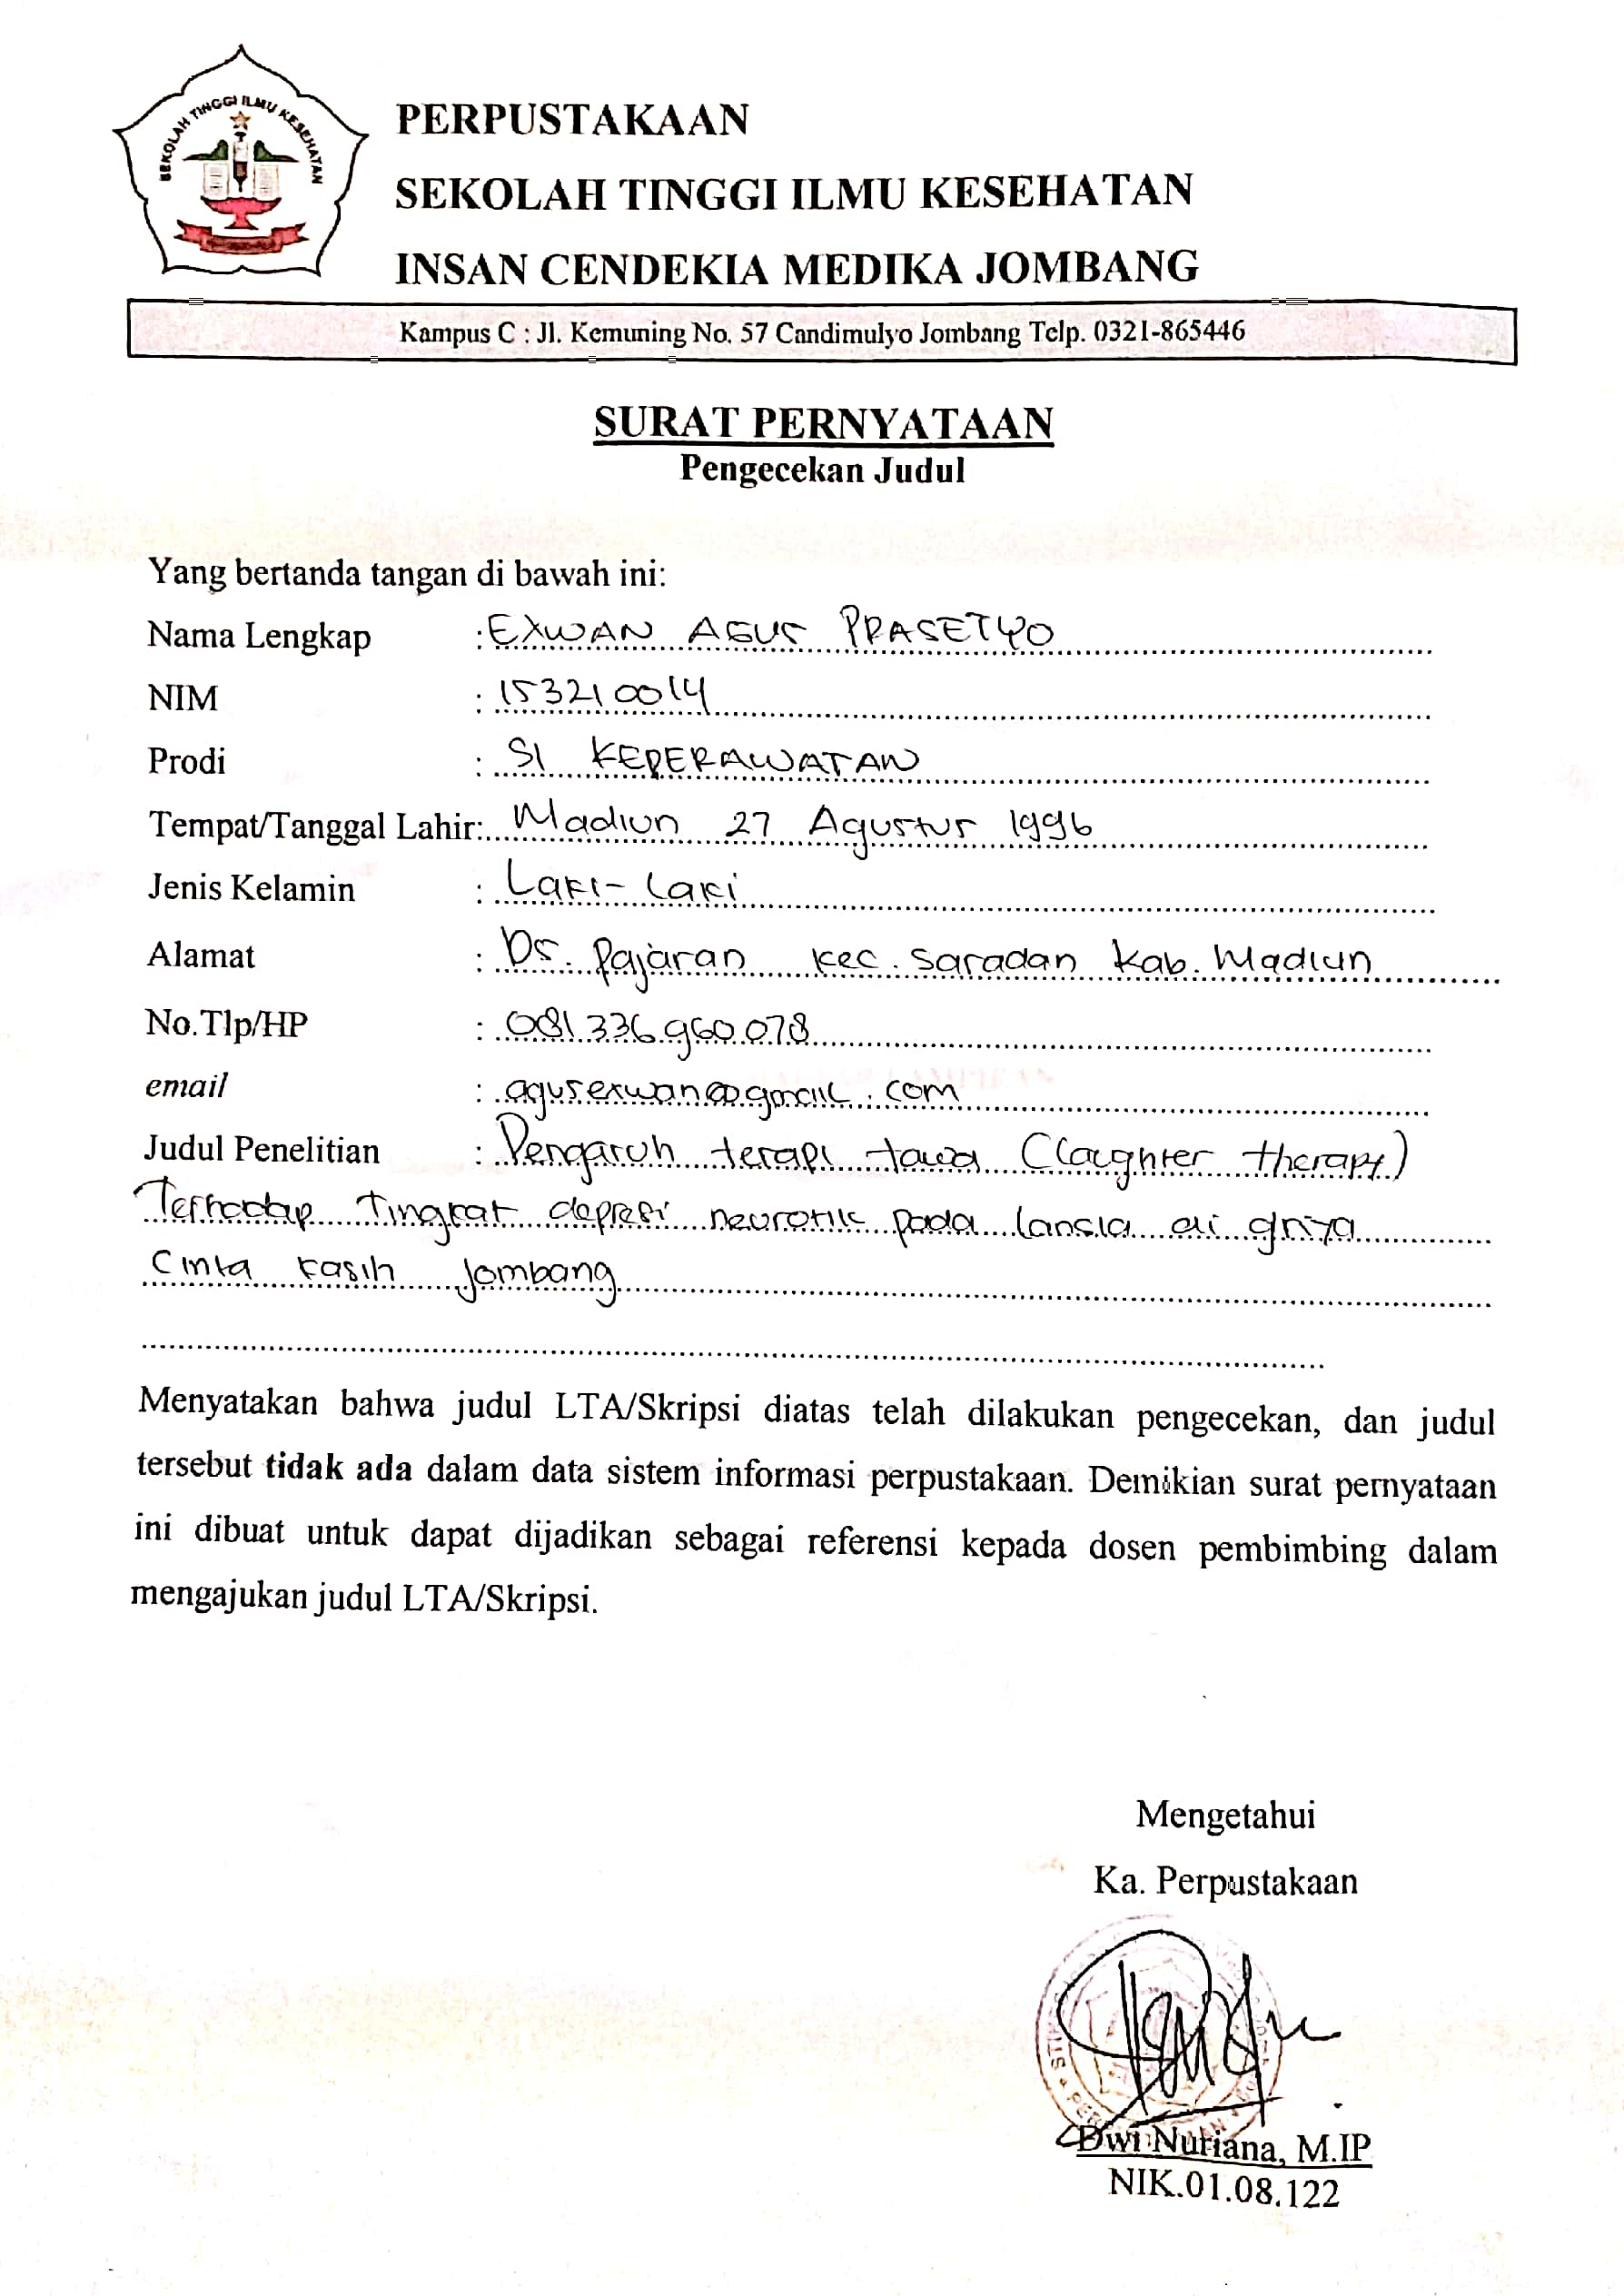 SEKOLAH TINGGI ILMU KESEHATAN
PERPUSTAKAAN
SEKOLAH TINGGI ILMU KESEHATAN
INSAN CENDEKIA MEDIKA JOMBANG
Kampus C : Jl. Kemuning No. 57 Candimulyo Jombang Telp. 0321-865446
SURAT PERNYATAAN
Pengecekan Judul
Yang bertanda tangan di bawah ini:
Nama Lengkap : EXWAN AGUS PRASETYO
NIM : 153210014
Prodi : S1 KEPERAWATAN
Tempat/Tanggal Lahir: Madiun 27 Agustus 1996
Jenis Kelamin : Laki-Laki
Alamat : Ds. Pajaran Kec. Saradan Kab. Madiun
No.Tlp/HP : 081336960078
email : agusexwan@gmail.com
Judul Penelitian : Pengaruh terapi tawa (Laughter therapy)
Terhadap Tingkat depresi neurotik pada lansia di griya
Cinta kasih Jombang
Menyatakan bahwa judul LTA/Skripsi diatas telah dilakukan pengecekan, dan judul
tersebut tidak ada dalam data sistem informasi perpustakaan. Demikian surat pernyataan
ini dibuat untuk dapat dijadikan sebagai referensi kepada dosen pembimbing dalam
mengajukan judul LTA/Skripsi.
Mengetahui
Ka. Perpustakaan
Dwi Nuriana, M.IP
NIK.01.08.122